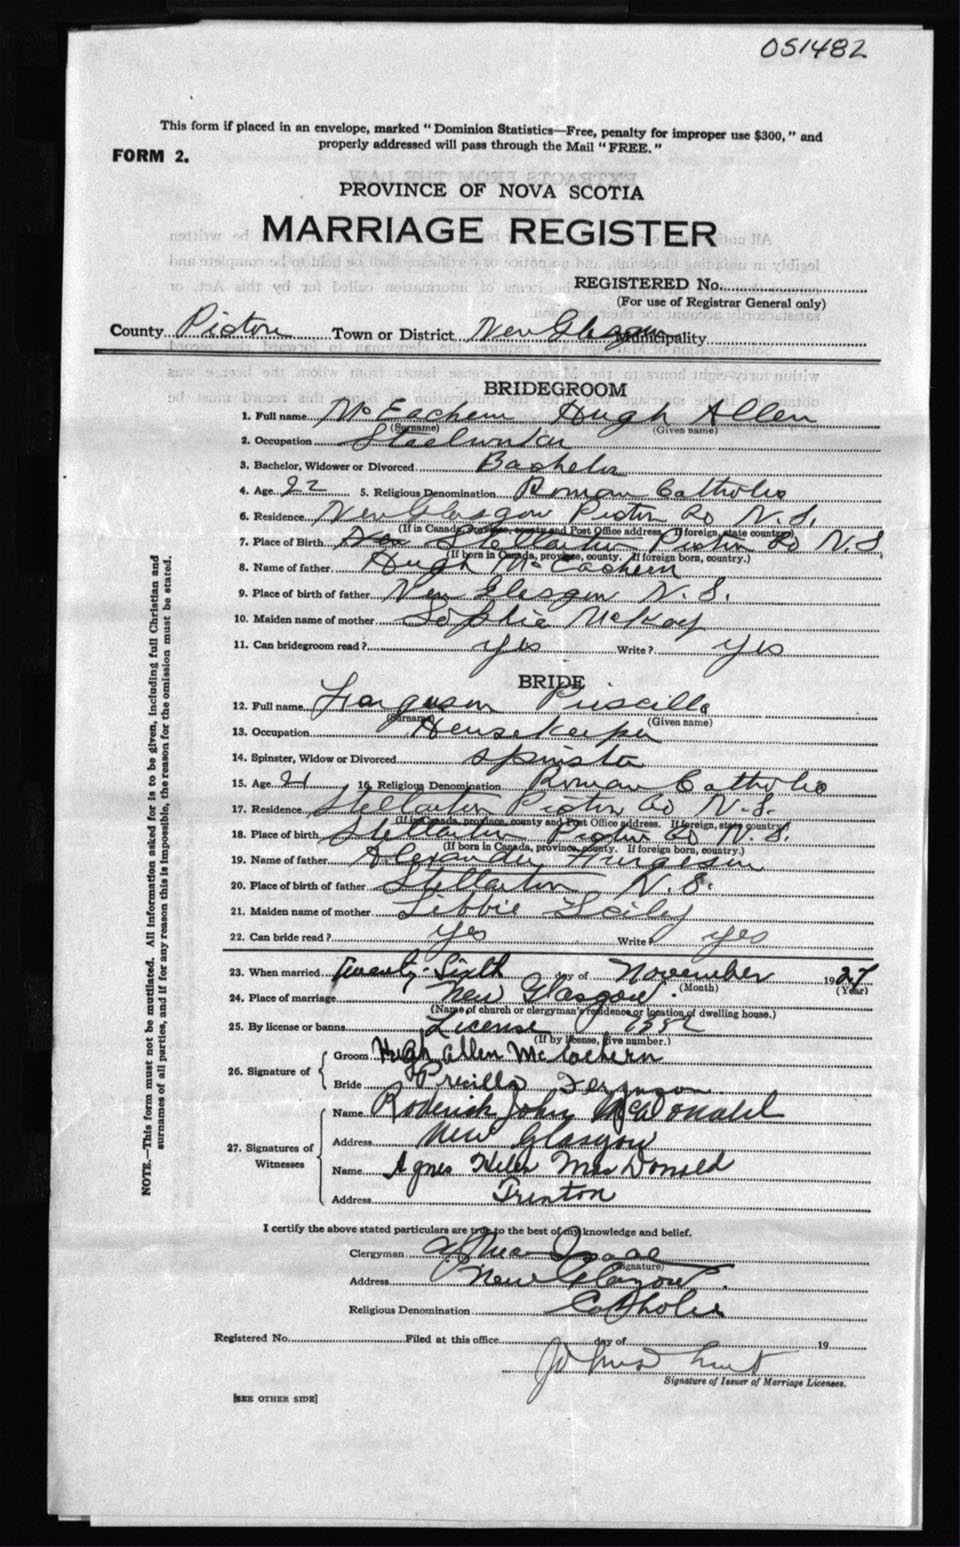 051482
This form if placed in an envelope, marked "Dominion Statistics—Free, penalty for improper use $300," and
properly addressed will pass through the Mail "FREE."
FORM 2.
PROVINCE OF NOVA SCOTIA
MARRIAGE REGISTER
REGISTERED No.
(For use of Registrar General only)
County Pictou Town or District New Glasgow Municipality
BRIDEGROOM
1. Full name McEachern Hugh Allen
(Surname) (Given name)
2. Occupation Steelworker
3. Bachelor, Widower or Divorced Bachelor
4. Age 22 5. Religious Denomination Roman Catholic
6. Residence New Glasgow Pictou Co N.S.
(If in Canada, province, county and Post Office address. If foreign, state country)
7. Place of Birth New Stellarton Pictou Co N.S.
(If born in Canada, province, county. If foreign born, country.)
8. Name of father Hugh McEachern
9. Place of birth of father New Glasgow N.S.
10. Maiden name of mother Sophie McKay
11. Can bridegroom read? yes Write? yes
BRIDE
12. Full name Ferguson Priscilla
(Surname) (Given name)
13. Occupation Housekeeper
14. Spinster, Widow or Divorced Spinster
15. Age 21 16. Religious Denomination Roman Catholic
17. Residence Stellarton Pictou Co N.S.
(If in Canada, province, county and Post Office address. If foreign, state country)
18. Place of birth Stellarton Pictou Co N.S.
(If born in Canada, province, county. If foreign born, country.)
19. Name of father Alexander
20. Place of birth of father Stellarton N.S.
21. Maiden name of mother Libbie
22. Can bride read? yes Write? yes
23. When married Twenty-Sixth day of November 1927
(Month) (Year)
24. Place of marriage New Glasgow.
(Name of church or clergyman's residence or location of dwelling house.)
25. By license or banns License
(If by license, give number.)
26. Signature of
Groom Hugh Allen McEachern
Bride Pricilla Ferguson
27. Signatures of Witnesses
Name Roderick John McDonald
Address New Glasgow
Name Agnes Helen MacDonald
Address Trenton
I certify the above stated particulars are true to the best of my knowledge and belief.
Clergyman
(Signature)
Address New Glasgow.
Religious Denomination Catholic
Registered No. Filed at this office day of 19
Signature of Issuer of Marriage Licenses.
[SEE OTHER SIDE]
NOTE.—This form must not be mutilated. All information asked for is to be given, including full Christian and
surnames of all parties, and if for any reason this is impossible, the reason for the omission must be stated.